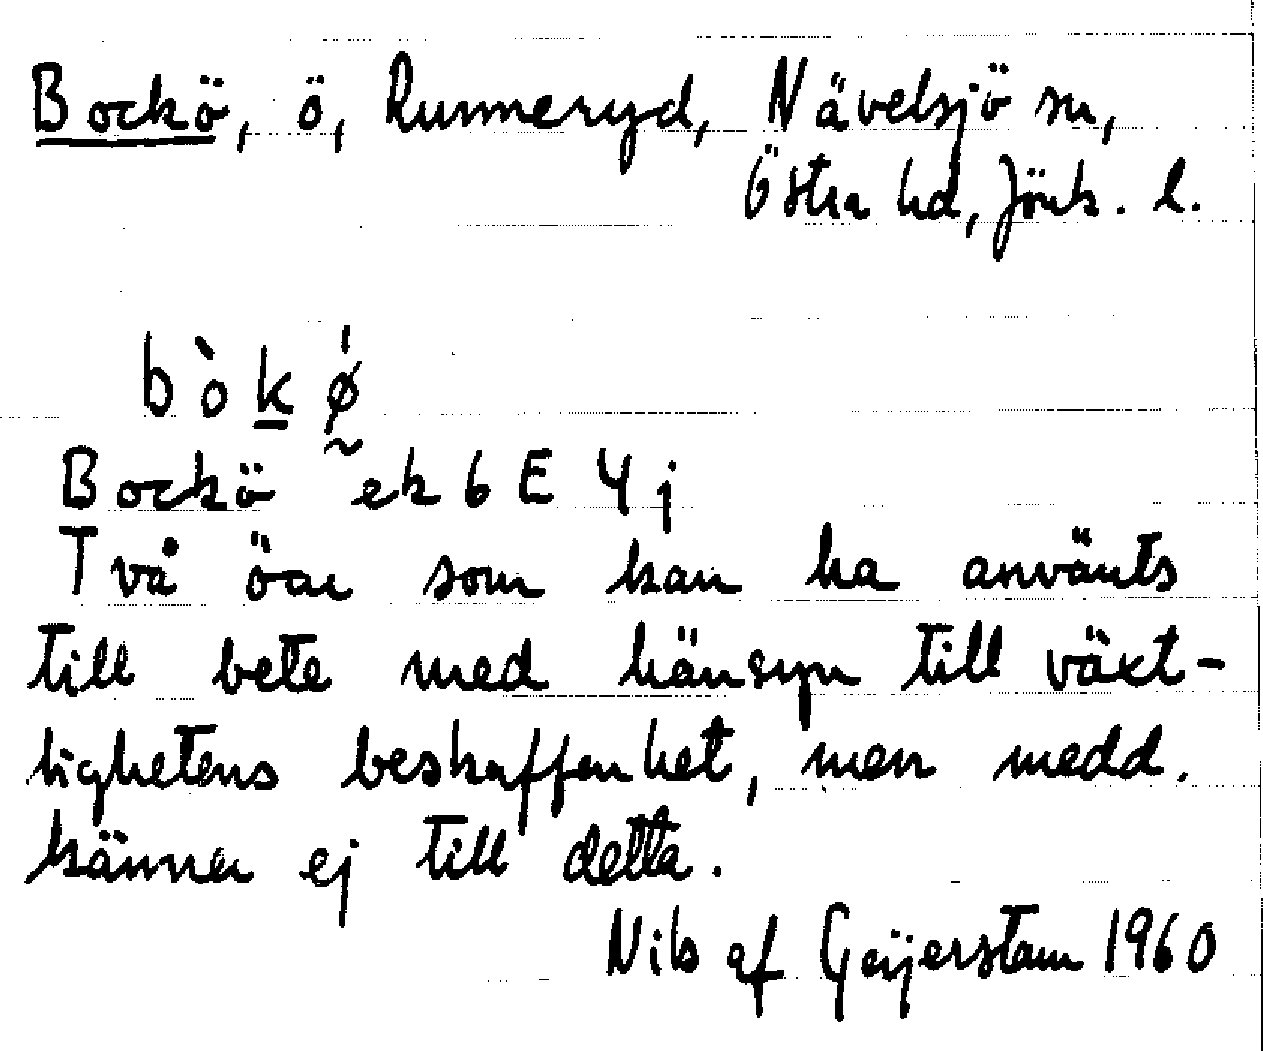 Bockö, ö, Runneryd, Nävelsjö sn,
Östra hd, Jönk. l.
bòkǿ̰
Bockö ek 6 E 4 j
Två öar som kan ha använts
till bete med hänsyn till växt-
lighetens beskaffenhet, men medd.
känner ej till detta.
Nils af Geijerstam 1960